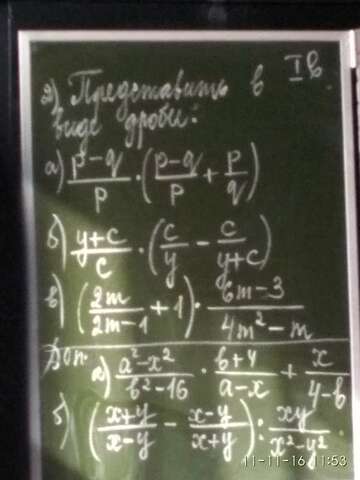 2) Представить в I в.
виде дроби:
а) (p-q)/p · ((p-q)/p + p/q)
б) (y+c)/c · (c/y - c/(y+c))
в) (2m/(2m-1) + 1) · (6m-3)/(4m²-m)
Доп. а) (a²-x²)/(b²-16) · (b+4)/(a-x) + x/(4-b)
б) ((x+y)/(x-y) - (x-y)/(x+y)) : xy/(x²-y²).
11-11-16 11:53